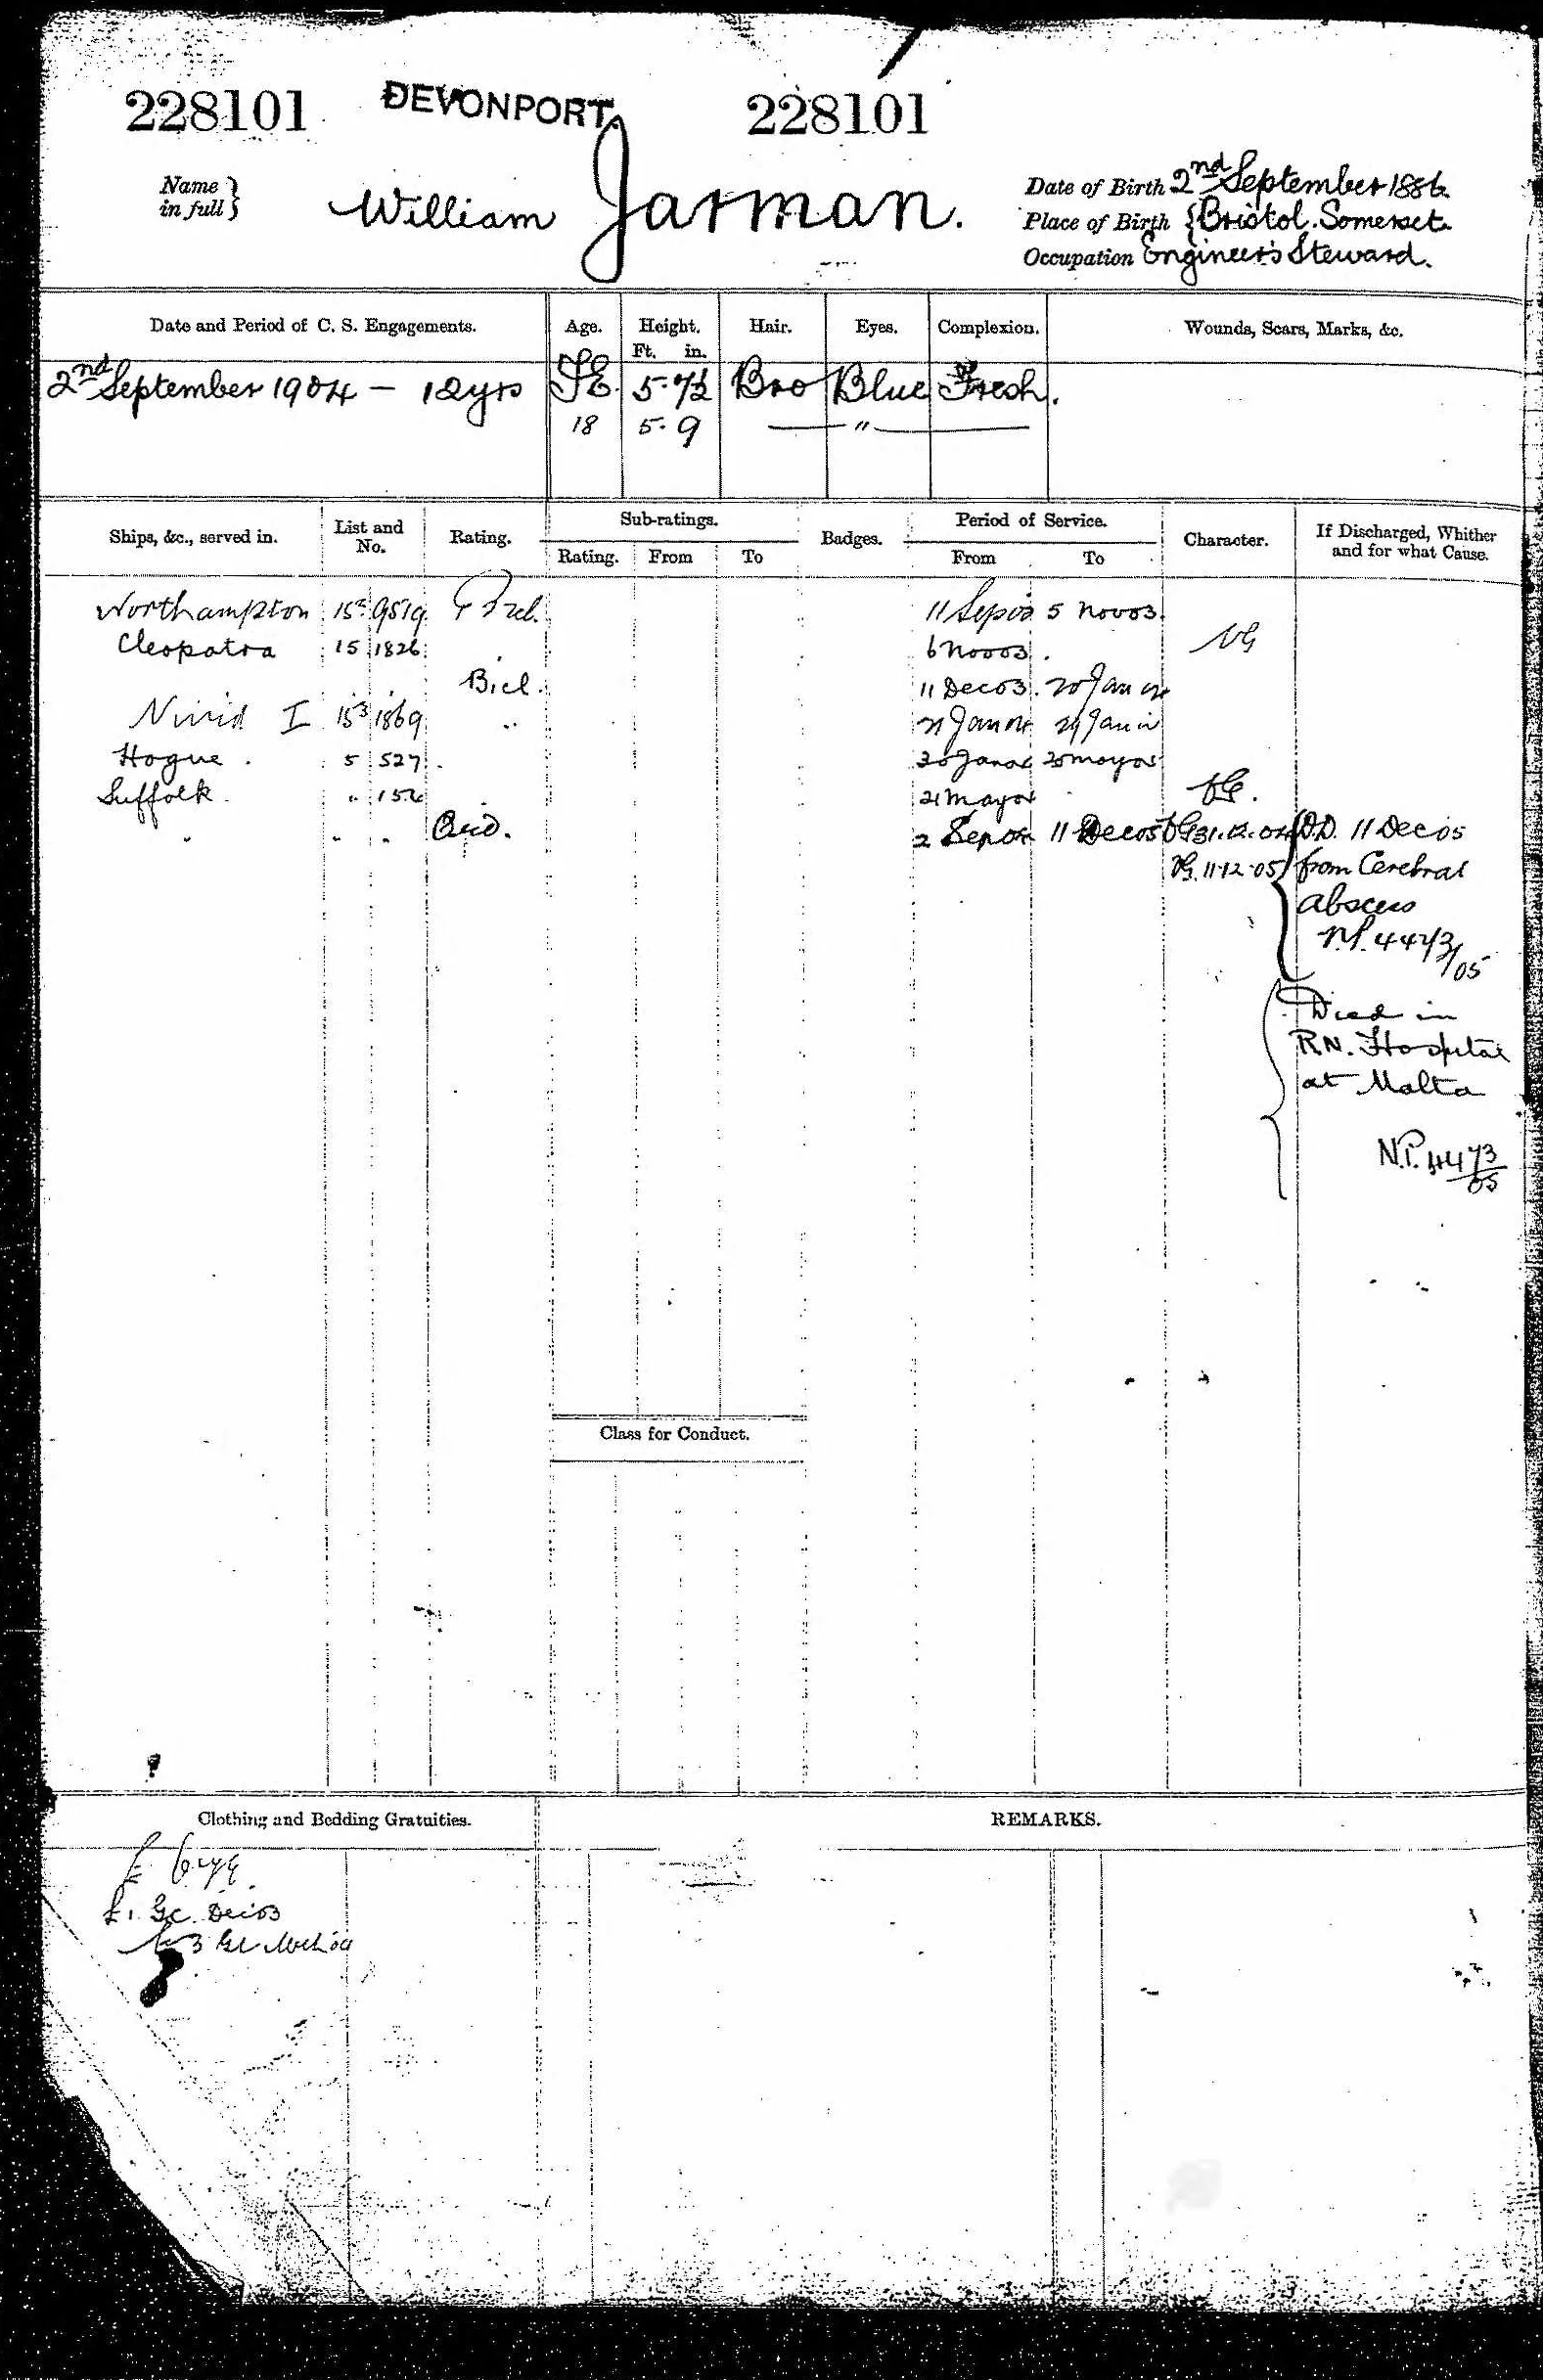 228101 DEVONPORT. 228101
Name in full } William Jarman.
Date of Birth 2nd September 1886
Place of Birth { Bristol. Somerset.
Occupation Engineer's Steward.
Date and Period of C. S. Engagements. Age. Height. Ft. in. Hair. Eyes. Complexion. Wounds, Scars, Marks, &c.
2nd September 1904 — 12 yrs 5. Bro Blue Fresh.
18 5. 9 — " —
Ships, &c., served in. List and No. Rating. Sub-ratings. Badges. Period of Service. Character. If Discharged, Whither and for what Cause.
Rating. From To From To
Northampton 15 9519 5 Nov 03.
Cleopatra 15 1826 6 Nov 03 VG
11 Dec 03. 20 Jan 04
I 15 3 1869 21 Jan 04
Hogue. 5 527
Suffolk. " 21 May 04 VG.
" " " Ord. 2 Sep 04 11 Dec 05 VG 31.12.04 D.D. 11 Dec 05
VG. 11.12.05 from Cerebral
abscess
N.P. 4473/05
Died in
R.N. Hospital
at Malta
N.P. 4473/05
Class for Conduct.
Clothing and Bedding Gratuities. REMARKS.
Dec 03